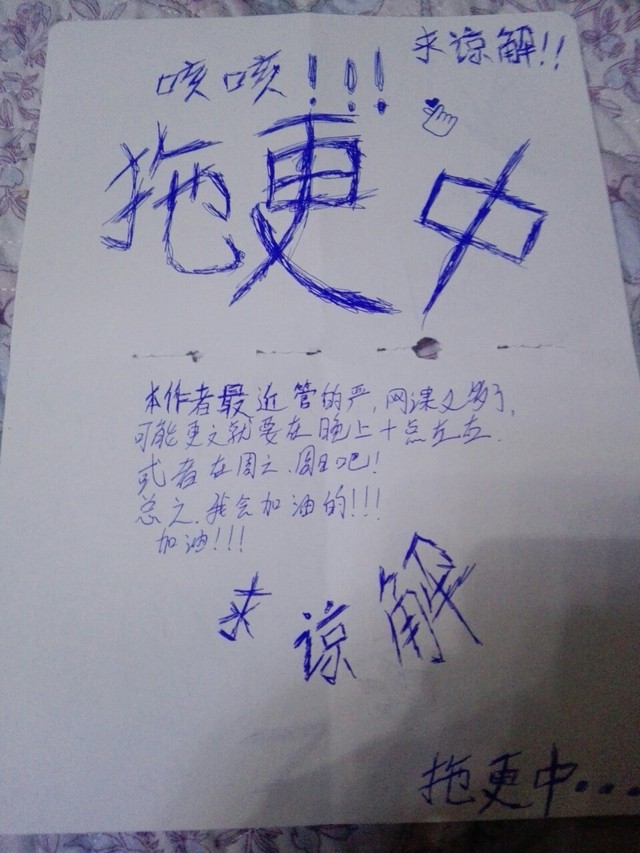 求谅解!!
咳咳!!!
拖更中
本作者最近管的严,网课又多了,
可能更文就要在晚上十点左右.
或者在周六.周日吧!
总之.我会加油的!!!
加油!!!
求谅解
拖更中...